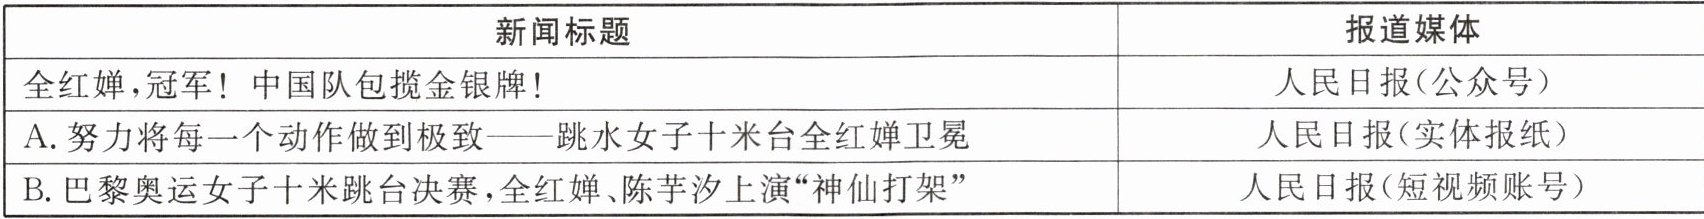 新闻标题 报道媒体
全红婵,冠军! 中国队包揽金银牌! 人民日报(公众号)
A. 努力将每一个动作做到极致——跳水女子十米台全红婵卫冕 人民日报(实体报纸)
B. 巴黎奥运女子十米跳台决赛,全红婵、陈芋汐上演“神仙打架” 人民日报(短视频账号)